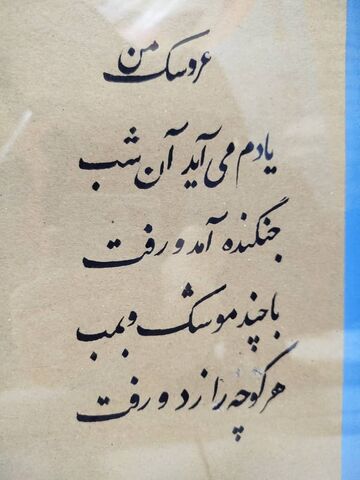 عروسک من
یادم می آید آن شب
جنگنده آمد و رفت
با چند موشک و بمب
هر کوچه را زد و رفت